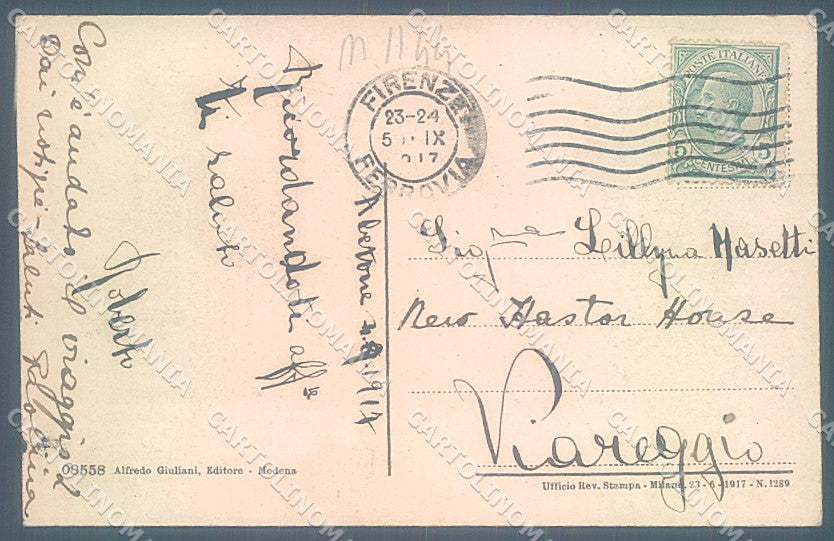 Com'è andato il viaggio?
Dai notizie - saluti
Ricordandoti aff/te
ti saluto
Roberto
Abetone 4.9.1917
FIRENZE
23-24
5 IX
917
FERROVIA
POSTE ITALIANE
5 5
CENTESIMI
Sig.na Lillyna Masetti
New Hastor House
Viareggio
08558 Alfredo Giuliani, Editore - Modena
Ufficio Rev. Stampa - Milano, 23 - 6 - 1917 - N. 1289
CARTOLINOMANIA